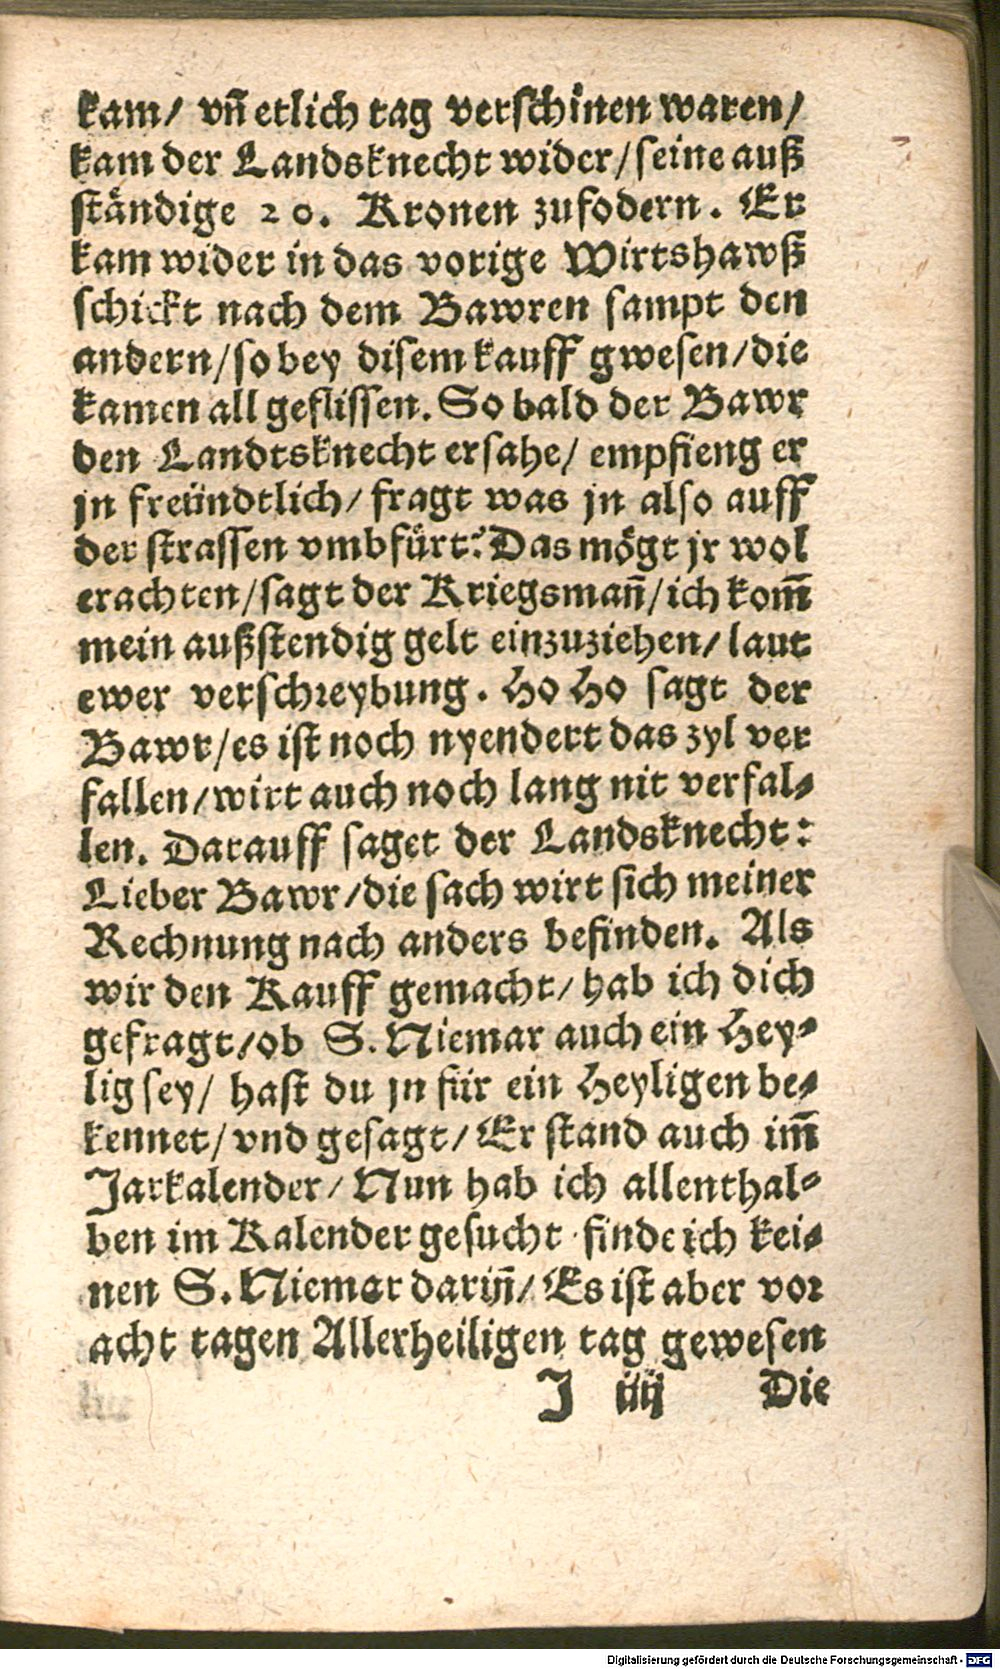 kam/ vn̄ etlich tag verschinen waren/
kam der Landsknecht wider/seine auß
ständige 20. Kronen zufodern. Er
kam wider in das vorige Wirtshawß
schickt nach dem Bawren sampt den
andern/so bey disem kauff gwesen/die
kamen all geflissen. So bald der Bawr
den Landtsknecht ersahe/ empfieng er
jn freündtlich/ fragt was jn also auff
der strassen vmbfürt? Das mögt jr wol
erachten/sagt der Kriegsman̄/ich kom̄
mein außstendig gelt einzuziehen/ laut
ewer verschreybung. Ho Ho sagt der
Bawr/es ist noch nyendert das zyl ver
fallen/wirt auch noch lang nit verfal⸗
len. Darauff saget der Landsknecht:
Lieber Bawr/die sach wirt sich meiner
Rechnung nach anders befinden. Als
wir den Kauff gemacht/ hab ich dich
gefragt/ob S. Niemar auch ein Hey⸗
lig sey/ hast du jn für ein Heyligen be⸗
kennet/ vnd gesagt/ Er stand auch im̄
Jarkalender/ Nun hab ich allenthal⸗
ben im Kalender gesucht · finde ich kei⸗
nen S. Niemar darin̄/ Es ist aber vor
acht tagen Allerheiligen tag gewesen
J iiij Die
Digitalisierung gefördert durch die Deutsche Forschungsgemeinschaft - DFG